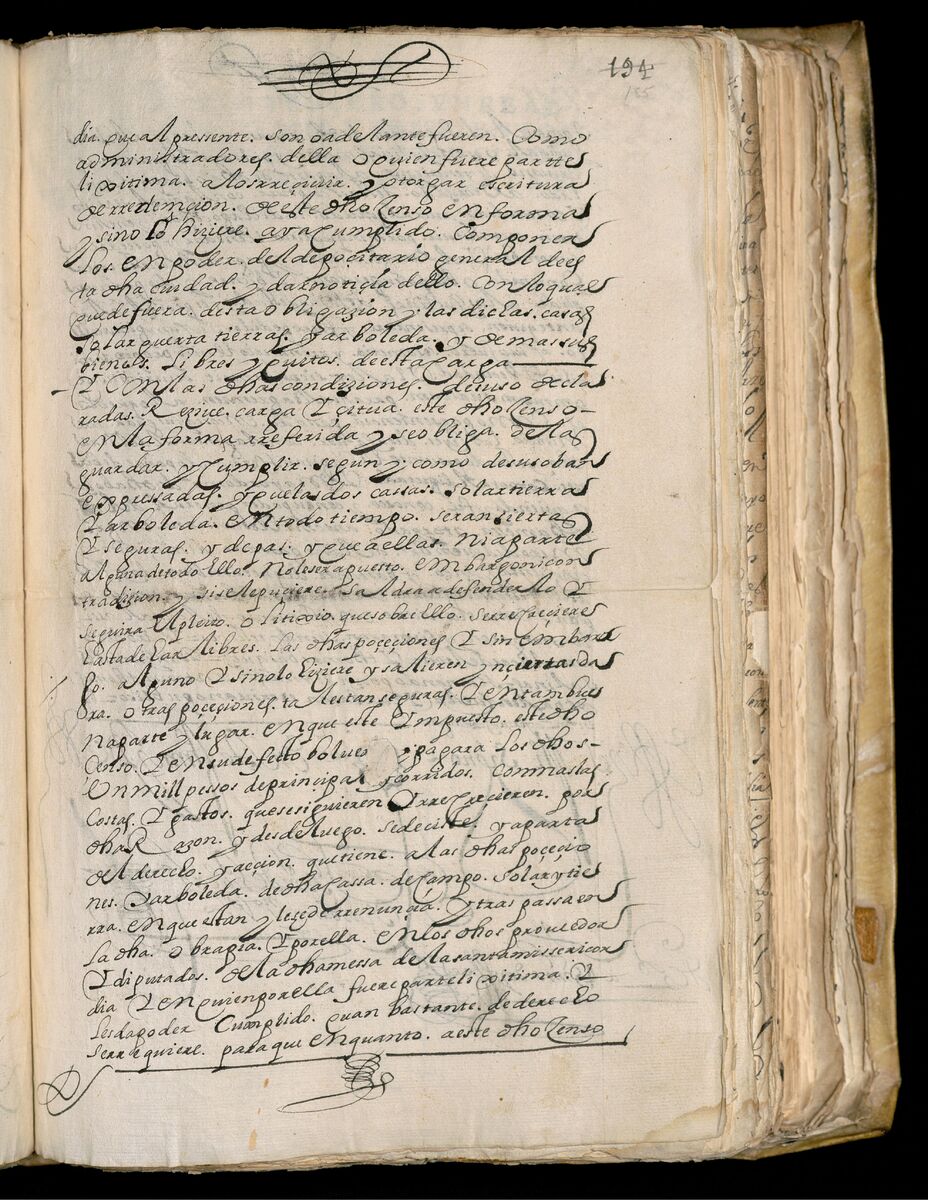 194
155
dia. que al pressente. son o adelante fueren. Como
administradores. della o quien fuere partte
lixitima. a los rreçiuir. y otorgar escritura
de rredençion. de este dho Zenso en forma
y sino lo hiziere. aya cumplido. Componer
los. en poder. del depocitario general de es
ta dha ciudad. y dar notiçia dello. Con lo qual
quede fuera. desta obligazion y las dichas. casas
solar guerta tierras. y arboleda. y demas sus
bienes. Libres y quitos. de esta Carga
Y Con las dhas condiziones. desuso decla
radas. Rezive. carga Y çitua. este dho Zenso
en la forma rreferida y se obliga. de las
guardar. y cumplir. segun y como desuso ban
expressadas. y que las dos cassas. solar tierras
Y arboleda. en todo tiempo. seran siertas
Y seguras. y de pas. y que a ellas. ni a parte
alguna de todo ello. no le sera puesto. embargo ni con
tradizion. y si se le puciere. saldra a defenderlo Y
seguira el pleito. o litixio. que sobre ello. se rrecreciere
hasta dexarlas libres. Las dhas poceçiones Y sin embar
go. alguno Y si no lo hiziere y salieren ynçiertas da
ra. otras poceçiones. tales tan seguras. Y en tan bue
na parte y lugar. en que este Ympuesto. este dho
Censo. Y en su defecto boluera y pagara los dhos
Un mill pessos de principal y corridos. Con mas las
Costas. Y gastos. que se siguieren Y rrecrecieren. por
dha Razon. y desde luego. se deciste. y aparta
del derecho. y acçion. que tiene. a las dhas poceçio
nes. Y arboleda. de dha Cassa. de Campo. solar y tie
rra. en que estan y lo cede rrenuncia. y traspassa en
la dha. obra pia. Y por ella. en los dhos proueedor
Y diputados. de la dha messa de la santa misericor
dia Y en quien por ella fuere parte lixitima. Y
les da poder Cumplido. quan bastante. de derecho
se rrequiere. para que en quanto. a este dho Zenso